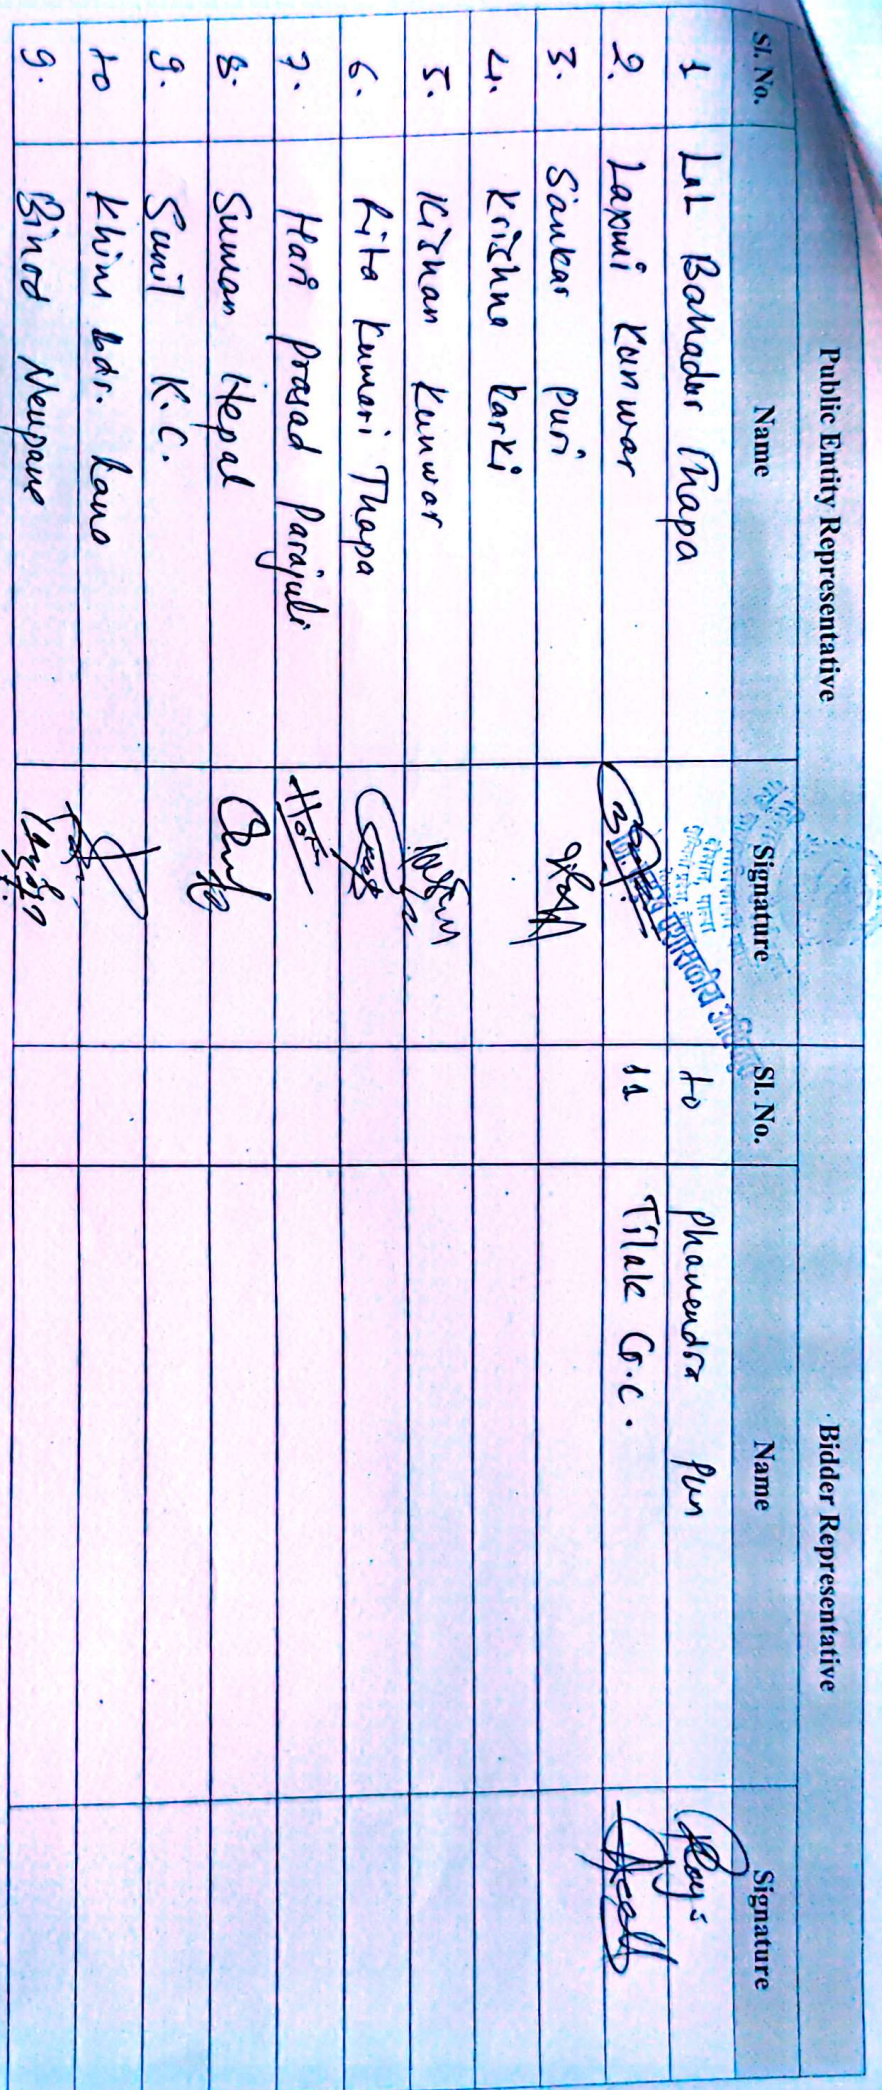 Public Entity Representative Bidder Representative
Sl. No. Name Signature Sl. No. Name Signature
1 Lal Bahadur Thapa 10 Phanendra Pun
2. Laxmi Kunwar 11 Tilak G.C.
3. Sankar Puri
4. Krishna Karki
5. Kishan Kunwar
6. Rita Kumari Thapa
7. Hari Prasad Parajuli Hari
8. Suman Hepal
9. Sunil K.C.
10 Khim bdr. Rana
9. Binod Neupane